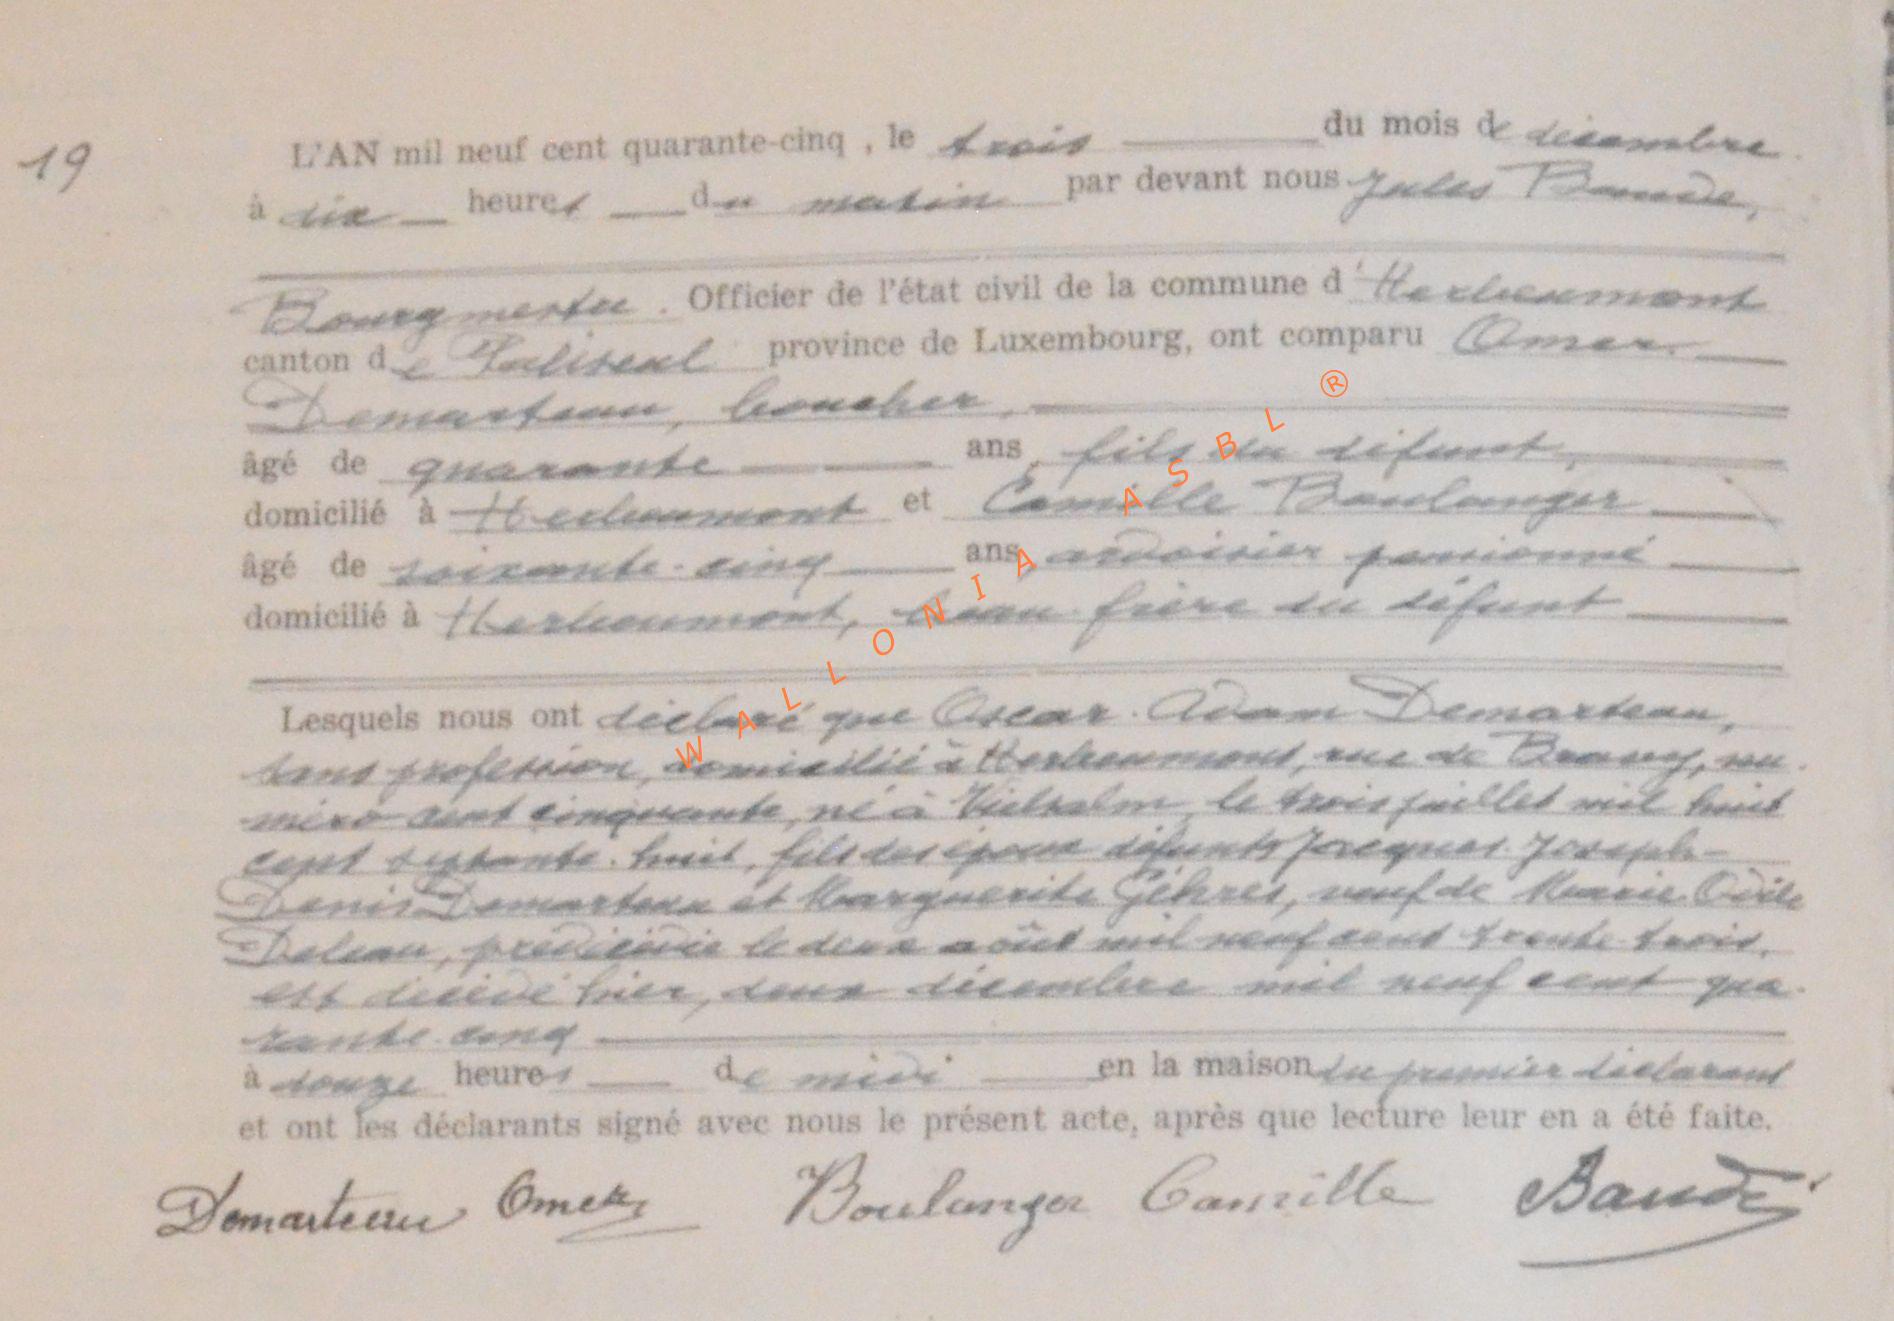 19
L'AN mil neuf cent quarante-cinq, le trois du mois de décembre
à dix heures du matin par devant nous Jules Baudé,
Bourgmestre. Officier de l'état civil de la commune d'Herbeumont
canton de Paliseul province de Luxembourg, ont comparu Omer
Demarteau, boucher,
âgé de quarante ans, fils du défunt,
domicilié à Herbeumont et Camille Boulanger
âgé de soixante-cinq ans, ardoisier pensionné
domicilié à Herbeumont, beau-frère du défunt
Lesquels nous ont déclaré que Oscar-Adam Demarteau,
sans profession, domicilié à Herbeumont, rue de, nu-
méro cent cinquante, né à Vielsalm, le trois juillet mil huit
cent septante-huit, fils des époux défunts Jacques-Joseph-
Denis Demarteau et Marguerite, veuf de Marie Odile
Deleau, prédécédée le deux août mil neuf cent trente-trois,
est décédé hier, deux décembre mil neuf cent qua-
rante-cinq
à douze heures de midi en la maison du premier déclarant
et ont les déclarants signé avec nous le présent acte, après que lecture leur en a été faite.
Demarteau Omer Boulanger Camille Baudé
WALLONIA ASBL ®